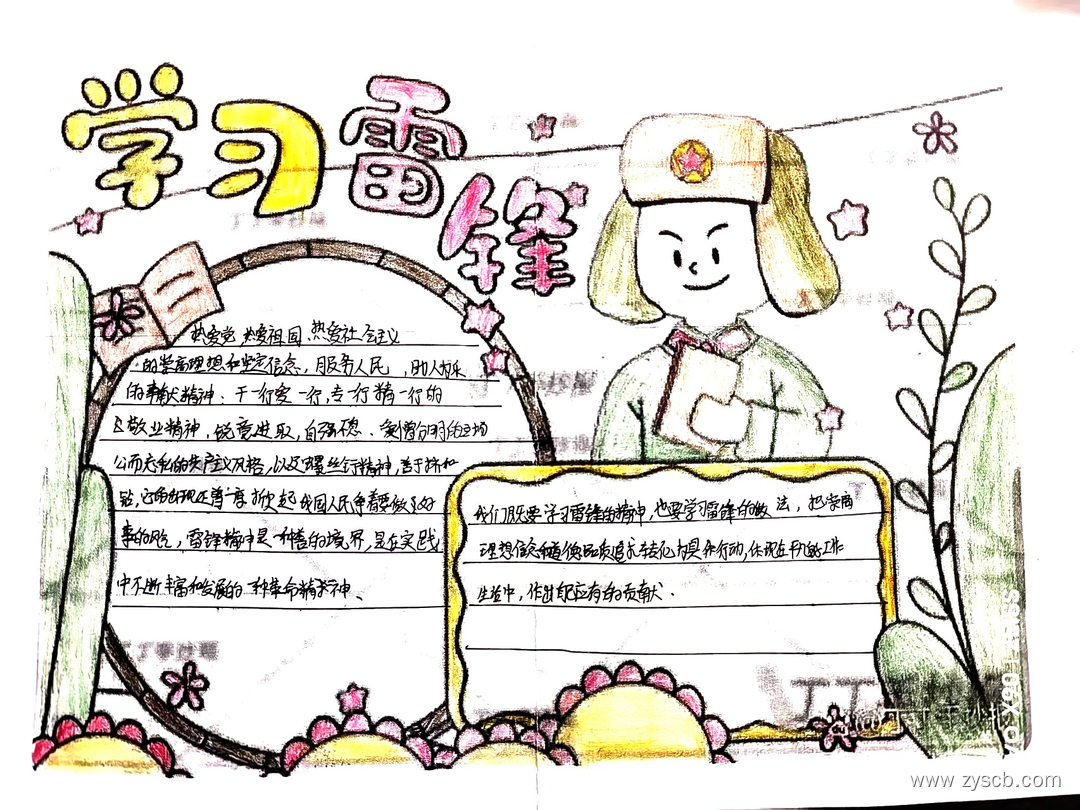 学习雷锋
热爱党 热爱祖国 热爱社会主义
的崇高理想和坚定信念，服务人民，助人为乐
的奉献精神、干一行爱一行，专一行精一行的
敬业精神，锐意进取，自强不息、
公而忘私的共产主义风格，以及螺丝钉精神，善于挤和
钻，
事的风气，雷锋精神是一种善的境界，是在实践
中不断丰富和发展的一种革命精神、
我们既要学习雷锋的精神，也要学习雷锋的做法，把崇高
理想信念和道德品质追求转化为具体行动，体现在平凡的工作
生活中，作出自己应有的贡献、
www.zyscb.com